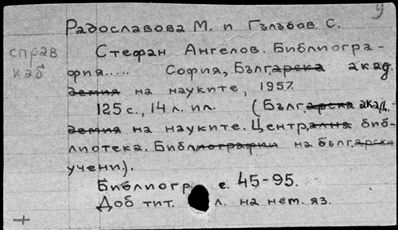 9
Радославова М. и Гълъбов С.
справ
каб
Стефан Ангелов. Библиогра-
фия.... София, Българска акад
емия на науките, 1957.
125 с., 14 л. ил. (Българска акад.-
емия на науките. Централна биб-
лиотека. Библиографии на български
учени).
Библиогр с. 45-95.
Доб тит. л. на нем. яз.
+